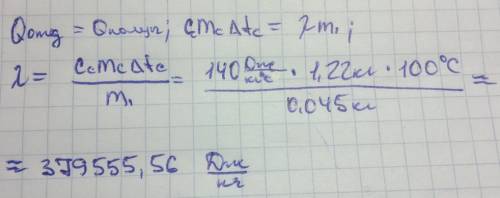 Qотд = Qполуч; CmcΔtc = λm₁;
λ = CcmcΔtc / m₁ = 140 Дж/кг°C · 1,22кг · 100°C / 0,045кг ≈
≈ 379555,56 Дж/кг